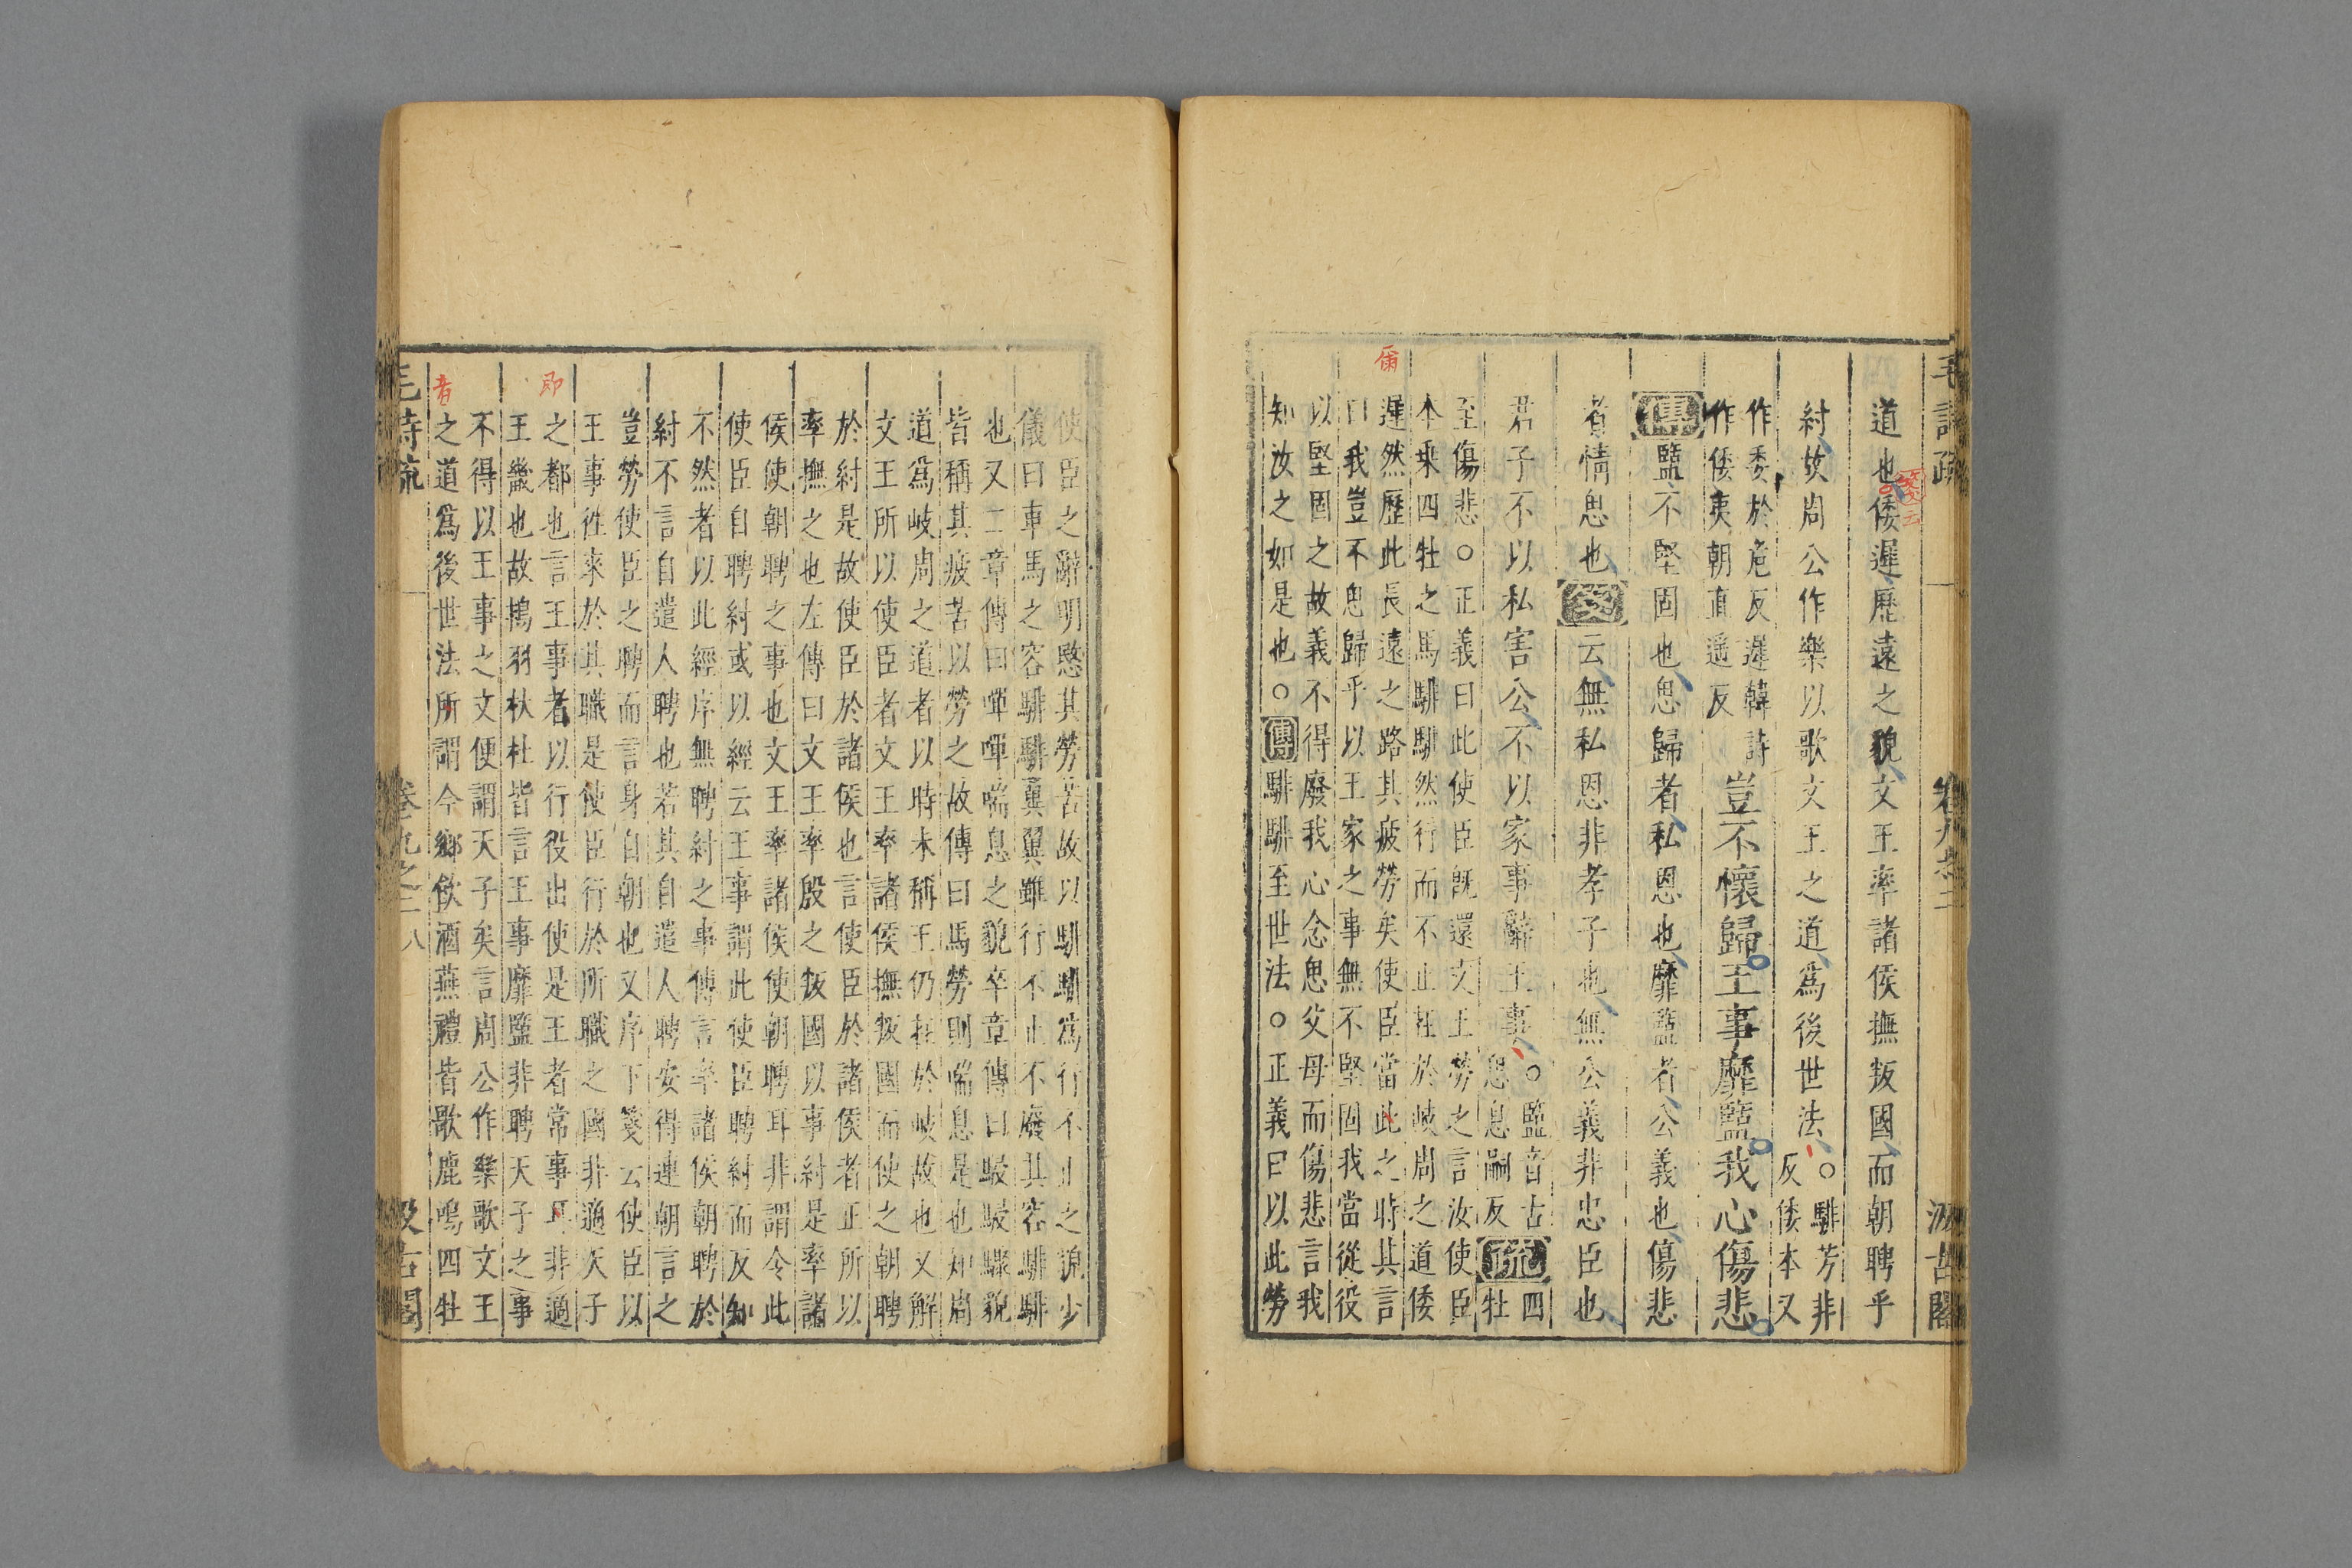 毛詩疏 卷九之二 汲古閣
道也倭遲歷遠之貌文王率諸侯撫叛國而朝聘乎
箋云
紂故周公作樂以歌文王之道爲後世法○騑芳非
反倭本又
作委於危反遲韓詩
作倭夷朝直遥反
豈不懷歸王事靡盬我心傷悲
傳盬不堅固也思歸者私恩也靡盬者公義也傷悲
者情思也箋云無私恩非孝子也無公義非忠臣也
君子不以私害公不以家事辭王事○盬音古
思息嗣反
疏四
牡
至傷悲○正義曰此使臣旣還文王勞之言汝使臣
本乘四牡之馬騑騑然行而不止在於岐周之道倭
遲然歷此長遠之路其疲勞矣使臣當此之時其言
爾
曰我豈不思歸乎以王家之事無不堅固我當從役
以堅固之故義不得廢我心念思父母而傷悲言我
知汝之如是也○傳騑騑至世法○正義曰以此勞
使臣之辭明愍其勞苦故以騑騑爲行不止之貌少
儀曰車馬之容騑騑翼翼雖行不止不廢其容騑騑
也又二章傳曰嘽嘽喘息之貌卒章傳曰駸駸驟貌
皆稱其疲苦以勞之故傳曰馬勞則喘息是也知周
道爲岐周之道者以時未稱王仍在於岐故也又解
文王所以使臣者文王率諸侯撫叛國而使之朝聘
於紂是故使臣於諸侯也言使臣於諸侯者正所以
率撫之也左傳曰文王率殷之叛國以事紂是率諸
侯使朝聘之事也文王率諸侯使朝聘耳非謂令此
使臣自聘紂或以經云王事謂此使臣聘紂而反知
不然者以此經序無聘紂之事傳言率諸侯朝聘於
紂不言自遣人聘也若其自遣人聘安得連朝言之
豈勞使臣之聘而言身自朝也又序下箋云使臣以
王事往來於其職是使臣行於所職之國非適天子
之都也言王事者以行役出使是王者常事耳非適
即
王畿也故鴇羽杕杜皆言王事靡盬非聘天子之事
不得以王事之文便謂天子矣言周公作樂歌文王
之道爲後世法所謂今鄉飲酒燕禮皆歌鹿鳴四牡
者
毛詩疏 卷九之二 八 汲古閣